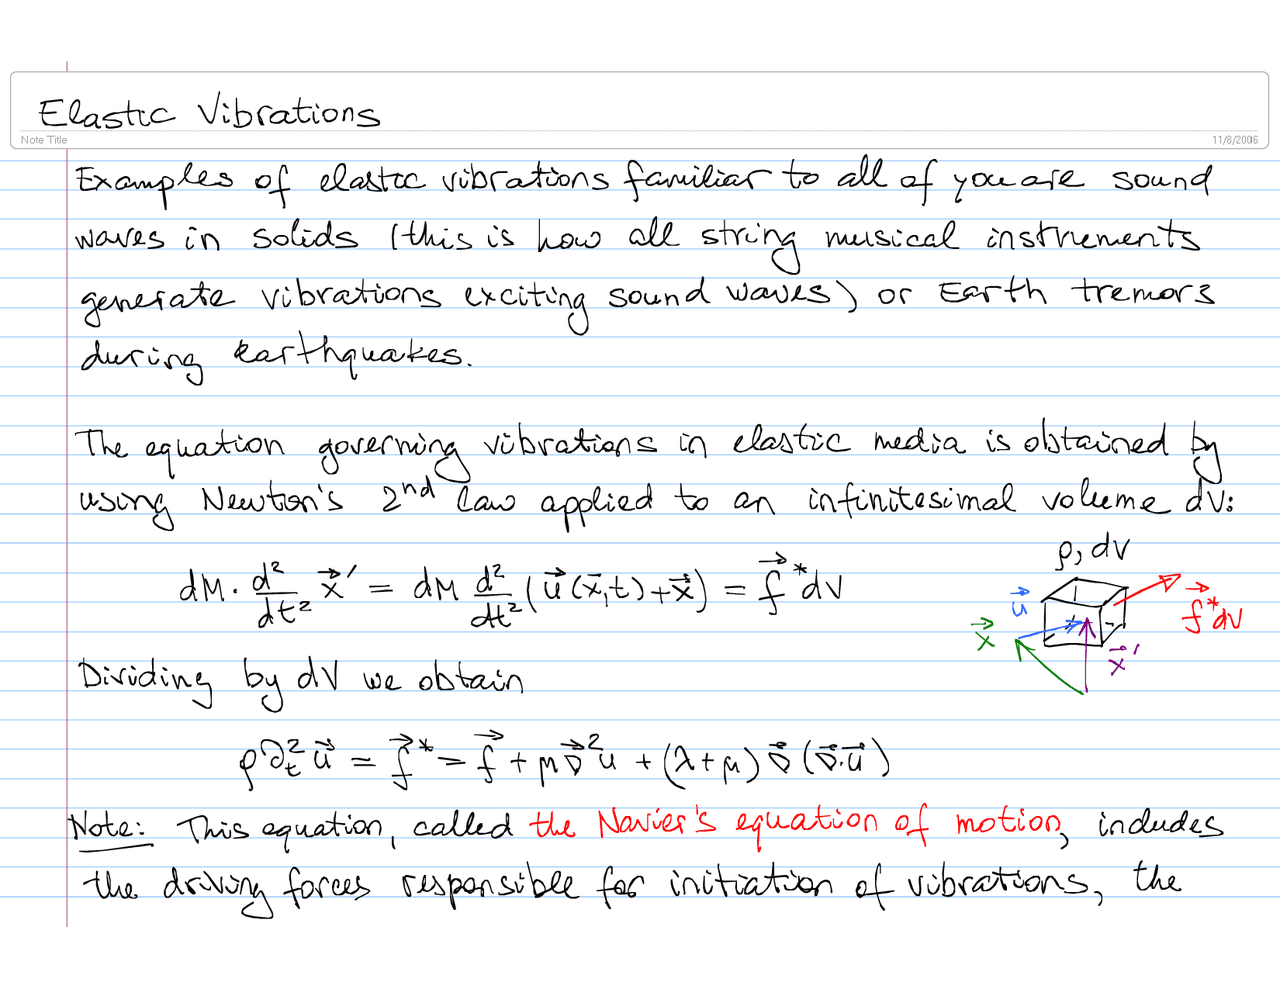 Elastic Vibrations
Note Title
11/8/2006
Examples of elastic vibrations familiar to all of you are sound
waves in solids (this is how all string musical instruments
generate vibrations exciting sound waves) or Earth tremors
during earthquakes.
The equation governing vibrations in elastic media is obtained by
using Newton's 2nd law applied to an infinitesimal volume dV:
ρ, dV
dM · d²/dt² x⃗' = dM d²/dt² (u⃗(x⃗,t) + x⃗) = f⃗* dV
u⃗
f⃗* dV
x⃗
x⃗'
Dividing by dV we obtain
ρ∂ₜ²u⃗ = f⃗* = f⃗ + μ∇⃗²u + (λ+μ)∇⃗(∇⃗·u⃗)
Note: This equation, called the Navier's equation of motion, includes
the driving forces responsible for initiation of vibrations, the